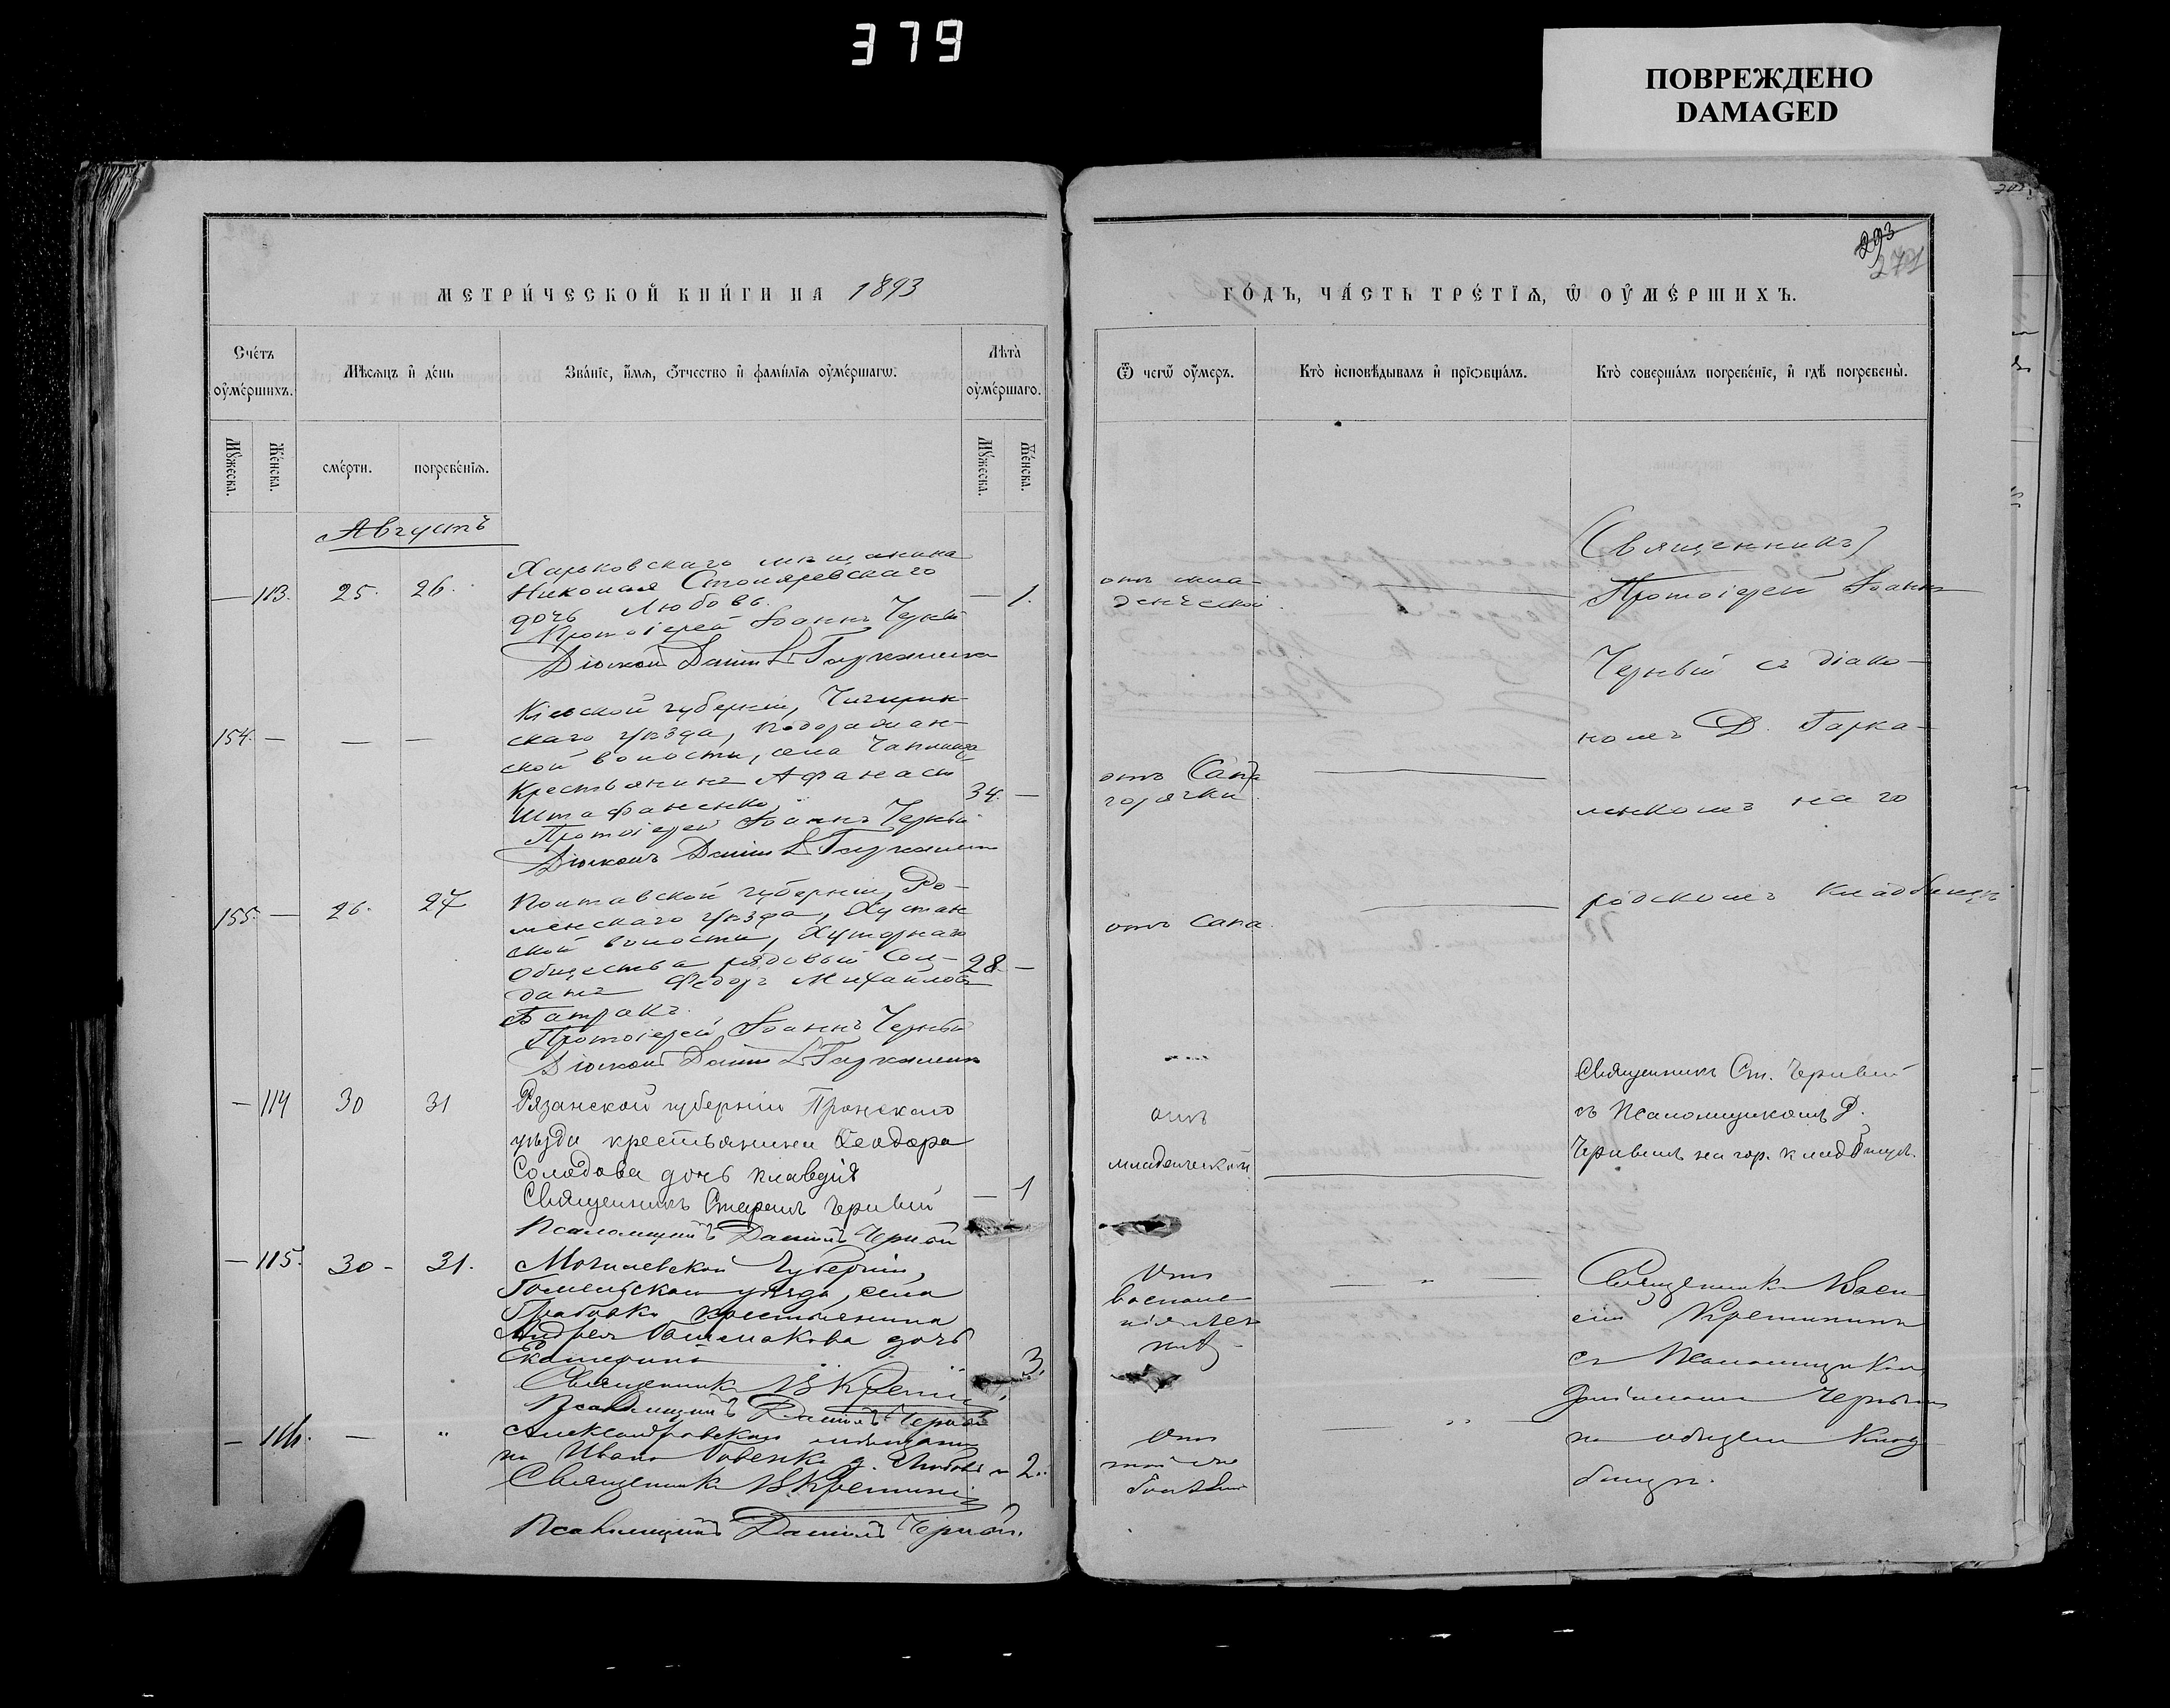 379
ПОВРЕЖДЕНО
DAMAGED
293
271
МЕТРИ́ЧЕСКОЙ КНИ́ГИ НА 1893
ГО́ДЪ, ЧА́СТЬ ТРЕ́ТІѦ, Ѡ҆ ОУ҆МЕ́РШИХЪ.
Сче́тъ оу҆ме́ршихъ.
Мꙋ́жеска.
Же́нска.
Мѣ́сѧцъ и҆ де́нь
сме́рти.
погребе́нїѧ.
Зва́нїе, и҆́мѧ, ѻ҆́тчество и҆ фами́лїѧ оу҆ме́ршагѡ.
Лѣта̀ оу҆ме́ршаго.
Мꙋ́жеска.
Же́нска.
Ѿ чегѡ̀ оу҆́меръ.
Кто̀ и҆сповѣ́дывалъ и҆ прїѡбща́лъ.
Кто̀ соверша́лъ погребе́нїе, и҆ гдѣ̀ погребены̀.
Августъ
— 113. 25. 26.
Харьковскаго мѣщанина
Николая
дочь Любовь.
— 1.
Протоіерей Іоаннъ Черный
Діаконъ Даніилъ Гаркаленко
отъ мла-
денческой.
(Священникъ)
Протоіерей Іоаннъ
Черный съ діако-
номъ Д. Гарка-
ленкомъ на го
родскомъ кладбищѣ
154. — — —
Кіевской губерніи, Чигирин-
скаго уѣзда,
ской волости, села
Крестьянинъ Афанасій
Штафаненко,
34. —
Протоіерей Іоаннъ Черный
Діаконъ Даніилъ Гаркаленко
отъ
горячки.
155. — 26. 27
Полтавской губерніи, Ро-
менскаго уѣзда,
ской волости, Хуторнаго
Общества рядовый Сол-
датъ Федоръ Михайловъ
Батракъ.
28. —
Протоіерей Іоаннъ Черный
Діаконъ Даніилъ Гаркаленко
отъ Сапа
— 114 30 31
Рязанской губерніи Пронскаго
уѣзда крестьянина Ѳеодора
Солодова дочь Клавдія
— 1
Священникъ Стефанъ Черный
Псаломщикъ Даніилъ Черной
отъ
младенческой
Священникъ Ст. Черный
съ Псаломщикомъ Д.
Чернымъ на гор. кладбищѣ.
— 115. 30 - 31.
Могилевской Губерніи,
Гомельскаго уѣзда, села
Грабовки крестьянина
Андрея Башмакова дочь
Екатерина
3.
Священникъ В Кремин
Псаломщикъ Даніилъ Черной
Отъ
воспале
нія
Священникъ Васи
лій
съ Псаломщиком
Даніиломъ Чернымъ
на общем клад
бищѣ.
— 116. — "
Александровскаго мѣщани
на Ивана д. Любовь
2.
Священникъ В Кремин
Псаломщикъ Даніилъ Черной.
Отъ